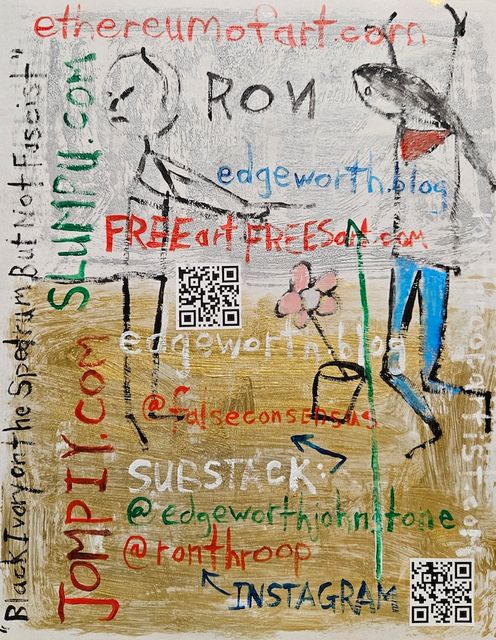 ethereumofart.com
RON
edgeworth.blog
FREEartFREESart.com
edgeworth.blog
@falseconsensus
SUBSTACK:
@edgeworthjohnstone
@ronthroop
INSTAGRAM
"Black Ivory on the Spectrum But Not Fascist"
SLUMPU.com
JOMPIY.com